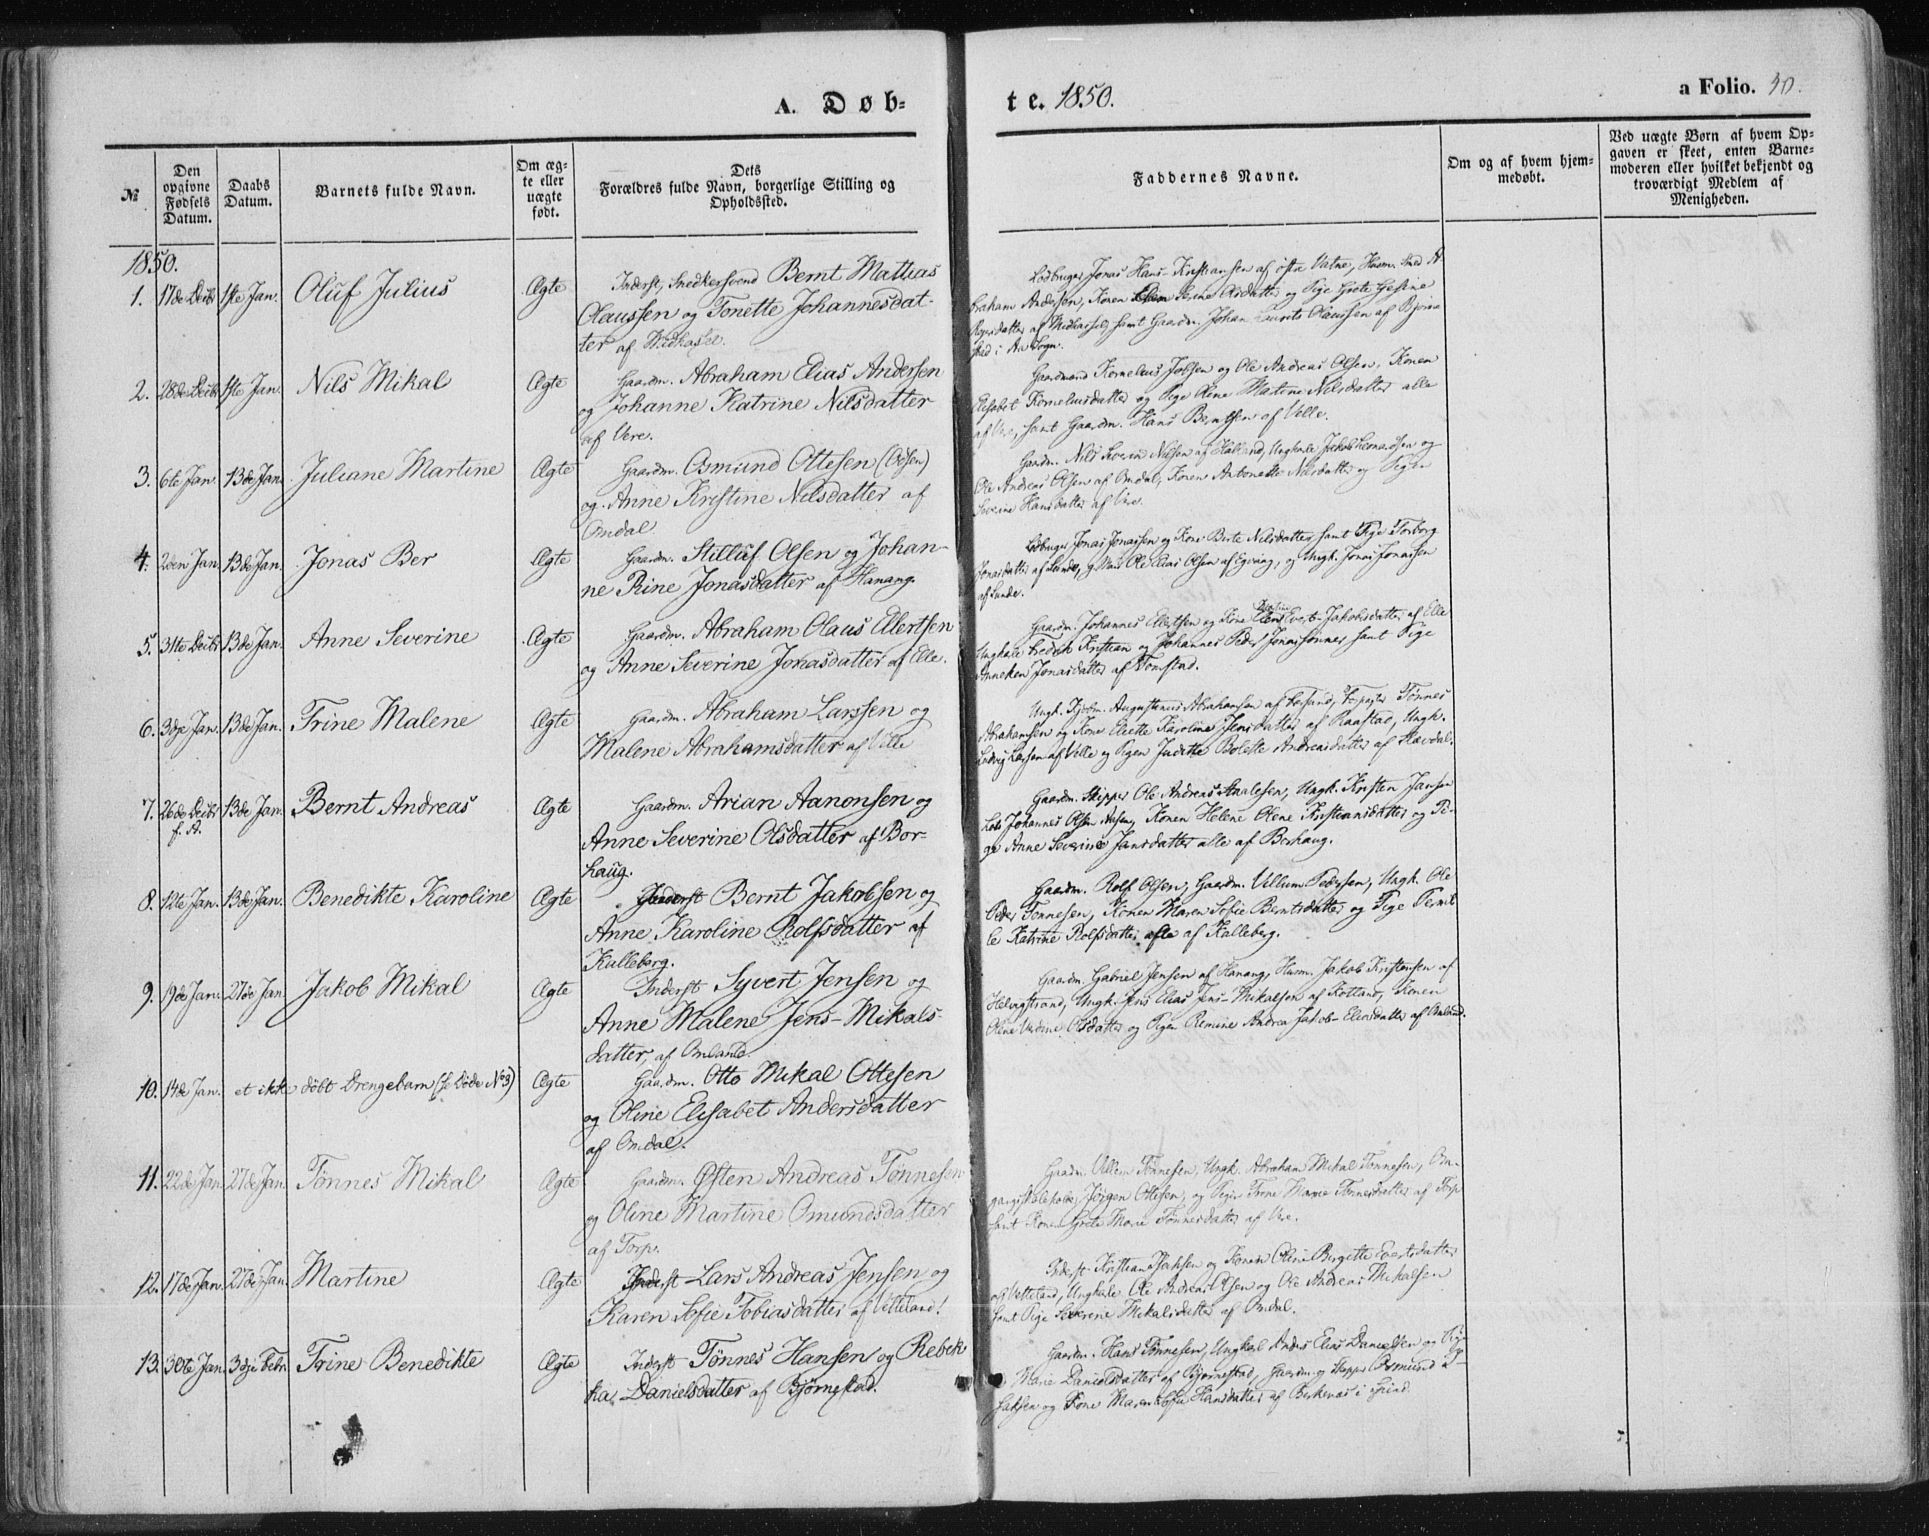 A. Døb-
te. 1850.
a Folio. 30.
№
Den opgivne Fødsels Datum.
Daabs Datum.
Barnets fulde Navn.
Om æg-te eller uægte født.
Dets Forældres fulde Navn, borgerlige Stilling og Opholdssted.
Faddernes Navne.
Om og af hvem hjem-medøbt.
Ved uægte Børn af hvem Op-gaven er skeet, enten Barne-moderen eller hvilket bekjendt og troværdigt Medlem af Menigheden.
1850.
1. 17de Decbr 1ste Jan. Oluf Julius Ægte Inderst, Snedkersvend Bernt Mathias
Olaussen og Tonette Johannesdat-
ter af
Jonas Hans-Kristiansen af østre Vatne, Huusm. Smed A
braham Andersen, Konen Serine Olsdatter og Pige Grete Gesine
samt Gaardm. Johan Laurits Olaussen af Bjørne
stad i Aa Sogn.
2. 28de Decbr 1ste Jan. Nils Mikal Ægte Gaardm. Abraham Elias Andersen
og Johanne Katrine Nilsdatter
af Vere.
Gaardmand Kornelius Jobsen og Ole Andreas Olsen, Konen
Elisabet Korneliusdatter og Pige Oline Martine Nilsdatter alle
af Vere, samt Gaardm. Hans Berntsen af Velle.
3. 6te Jan. 13de Jan. Juliane Martine Ægte Gaardm. Osmund Ottesen (Olsen)
og Anne Kristine Nilsdatter af
Omdal
Gaardm. Nils Nilsen af Ungkarle Jakob Leonardsen og
Ole Andreas Olsen af Omdal, Konen Antonette Nilsdatter og Pigen
Severine Hansdatter af Vere.
4. 2den Jan. 13de Jan. Jonas Ber Ægte Gaardm. Stilluf Olsen og Johan-
ne Rine Jonasdatter af Hanang.
Jonas Jonassen og Kone Berte Nilsdatter samt Pige Torborg
Jonasdatter af Lunde, Ole Elias Olsen af og Ungk. Jonas Jonassen
af Lunde.
5. 31te Decbr 13de Jan. Anne Severine Ægte Gaardm. Abraham Olaus Ellertsen
og Anne Severine Jonasdatter af Elle.
Gaardm. Johannes Ellertsen og Kone Jakobsdatter af Elle
Ungkarle Fredrik Kristian og Johannes Peder Jonassønner samt Pige
Anneken Jonasdatter af Tomstad.
6. 3dje Jan. 13de Jan. Trine Malene Ægte Gaardm. Abraham Larssen og
Malene Abrahamsdatter af Ville
Ungk. Augustinus Abrahamsen af Tønnes
Abrahamsen og Kone Karoline Jensdatter af Raastad, Ungk.
Ludvig Larsen af Velle og Pigen Judithe Bolette Andreasdatter af Hævdal.
7. 26de Decbr f. A. 13de Jan. Bernt Andreas Ægte Gaardm. Arian Aanonsen og
Anne Severine Olsdatter af Bor-
haug.
Gaardm. Skipper Ole Andreas Staalesen, Ungk. Kristen Jansen
Lods Johannes Olsen Konen Helene Olene Kristiansdatter og Pi-
ge Anne Severine Jansdatter alle af Borhaug.
8. 12te Jan. 13de Jan. Benedikte Karoline Ægte Inderst Bernt Jakobsen og
Anne Karoline Rolfsdatter af
Kalleberg.
Gaardm. Rolf Olsen, Gaardm. Villum Pedersen, Ungk. Ole
Peder Tønnesen, Konen Maren Sofie Berntsdatter og Pige Pernil
le Katrine Rolfsdatter alle af Kalleberg.
9. 19de Jan. 27de Jan. Jakob Mikal Ægte Inderst Syvert Jensen og
Anne Malene Jens-Mikals-
datter, af Omland.
Gaardm. Gabriel Jensen af Hanang, Husm. Jakob Kristensen af
Helvigstrand, Ungk. Jens Elias Jens-Mikalsen af Kotland, Konen
Oline Olsdatter og Pigen Remine Andrea Jakob-Eliasdatter af Omland.
10. 14de Jan. et ikke døbt Drengebarn (se Døde No 3) Ægte Gaardm. Otto Mikal Ottesen
og Oline Elisabet Andersdatter
af Omdal.
11. 22de Jan. 27de Jan. Tønnes Mikal Ægte Gaardm. Østen Andreas Tønnesen
og Oline Martine Omundsdatter
af Torp.
Gaardm. Villem Tønnesen, Ungk. Abraham Mikal Tønnesen, Om-
gangsskoleholder Jörgen Ottesen, og Pigen Trine Marie Tønnesdatter af Torp
samt Konen Grete Marie Tønnesdatter af Vere.
12. 17de Jan. 27de Jan. Martine Ægte Inderst Lars Andreas Jensen og
Karen Sofie Tobiasdatter af Vetteland.
Inderst Kristian Isaksen og Konen Oline Birgitte Evertsdatter
af Vetteland, Ungkarle Ole Andreas Olsen og Ole Andreas Mikalsen
samt Pige Severine Mikalsdatter af Omdal.
13. 30te Jan 3dje Febr. Trine Benedikte Ægte Inderst Tønnes Hansen og Rebek
ka Danielsdatter af Bjørnestad.
Gaardm. Hans Tønnesen, Ungkarl Anders Elias Danielsen og Pi-
ge Marie Danielsdatter af Bjørnestad, Gaardm. og Skipper Osmund I-
saksen og Kone Maren Sofie Hansdatter af Birkenes i Spind.